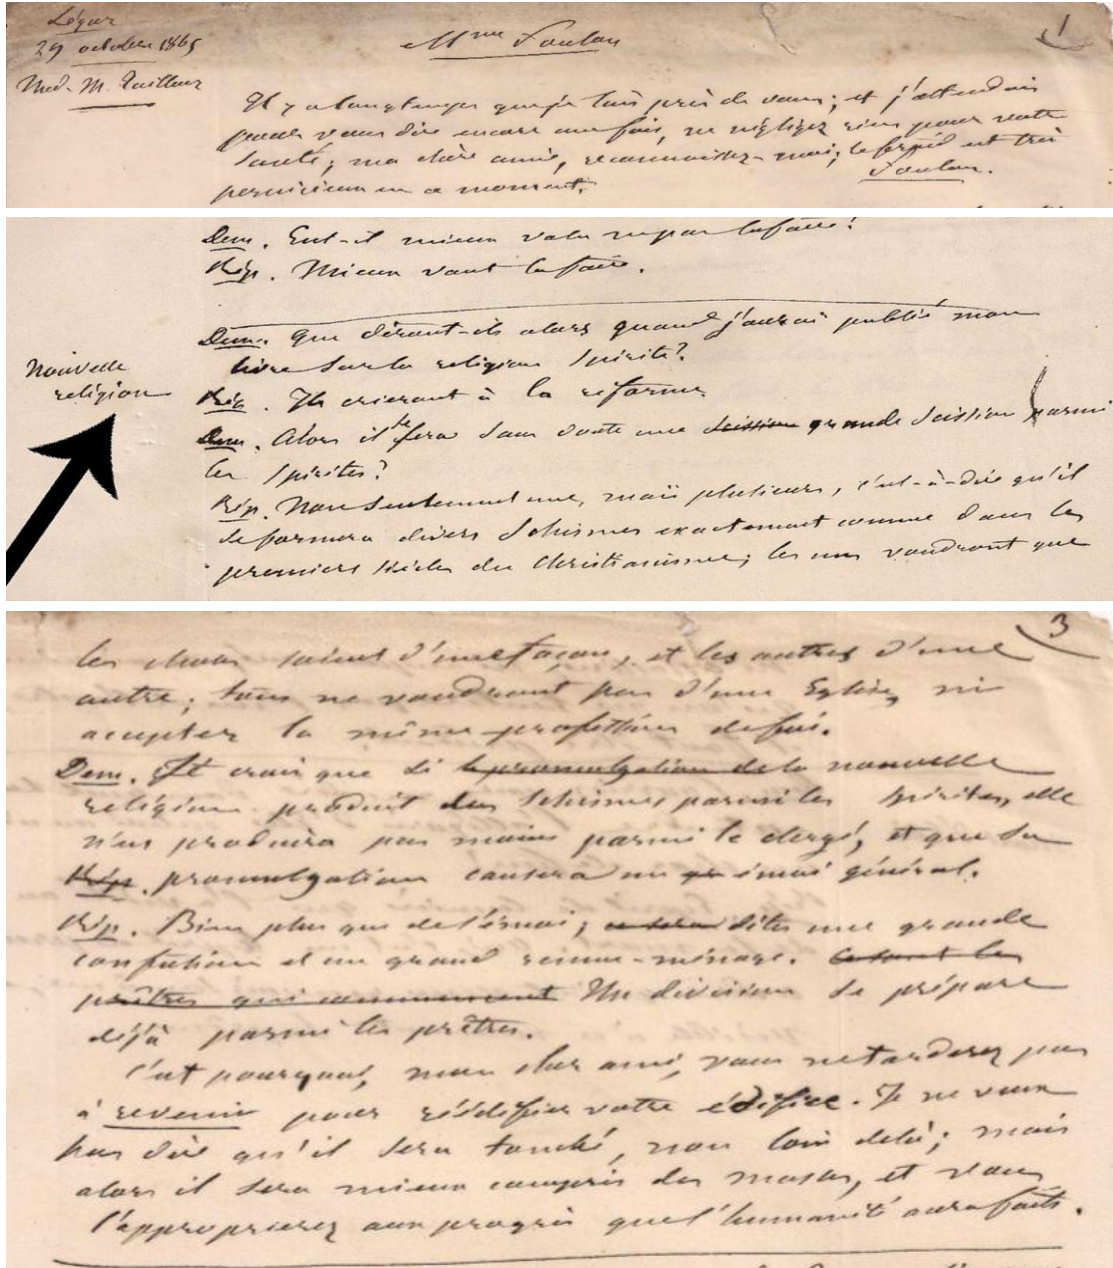 Ségur
29 octobre 1865
Méd. M. Tailleur
Mme Foulon
1
Il y a longtemps que je suis près de vous; et j'attendais
pour vous dire encore une fois, ne négligez rien pour votre
santé; ma chère amie, reconnaissez-moi; le froid est très
pernicieux en ce moment.
Foulon.
Dem. Eut-il mieux valu ne pas la faire?
Rép. Mieux vaut la faire.
Dem. Que diront-ils alors quand j'aurai publié mon
livre sur la religion spirite?
Nouvelle
religion
Rép. Ils crieront à la réforme.
Dem. Alors il se fera sans doute une scission grande scission parmi
les spirites?
Rép. Non seulement une, mais plusieurs, c'est-à-dire qu'il
se formera divers schismes exactement comme dans les
premiers siècles du Christianisme; les uns voudront que
3
les choses soient d'une façon, et les autres d'une
autre; tous ne voudront pas d'une Eglise, ni
accepter la même profession de foi.
Dem. Je crois que si la promulgation de la nouvelle
religion produit des schismes parmi les spirites, elle
n'en produira pas moins parmi le clergé, et que sa
Rép. promulgation causera un émoi général.
Rép. Bien plus que de l'émoi; ce sera dites une grande
confusion et un grand remue-ménage. Ce sont les
prêtres qui commencent Une division se prépare
déjà parmi les prêtres.
C'est pourquoi, mon cher ami, vous ne tarderez pas
à revenir pour réédifier votre édifice. Je ne veux
pas dire qu'il sera tombé, non loin delà; mais
alors il sera mieux compris des masses, et vous
l'approprierez aux progrès que l'humanité aura faits.